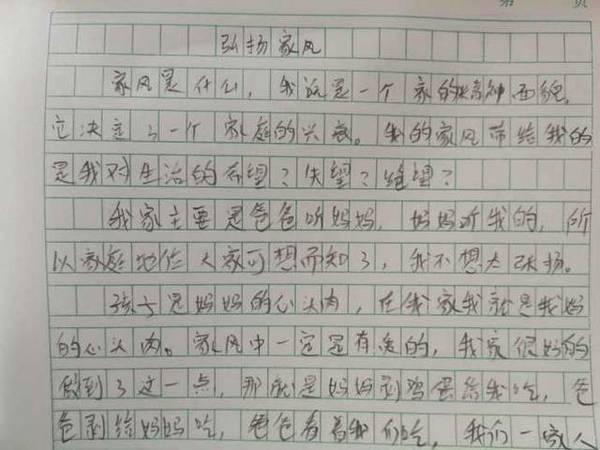 第 页
弘扬家风
家风是什么，我说是一个家的精神面貌。
它决定了一个家庭的兴衰。我的家风带给我的
是我对生活的希望？失望？绝望？
我家主要是爸爸听妈妈，妈妈听我的，所
以家庭地位大家可想而知了，我不想太张扬。
孩子是妈妈的心头肉，在我家我就是我妈
的心头肉。家风中一定是有爱的，我家很好的
做到了这一点，那就是妈妈剥鸡蛋给我吃，爸
爸剥给妈妈吃，爸爸看着我们吃，我们一家人